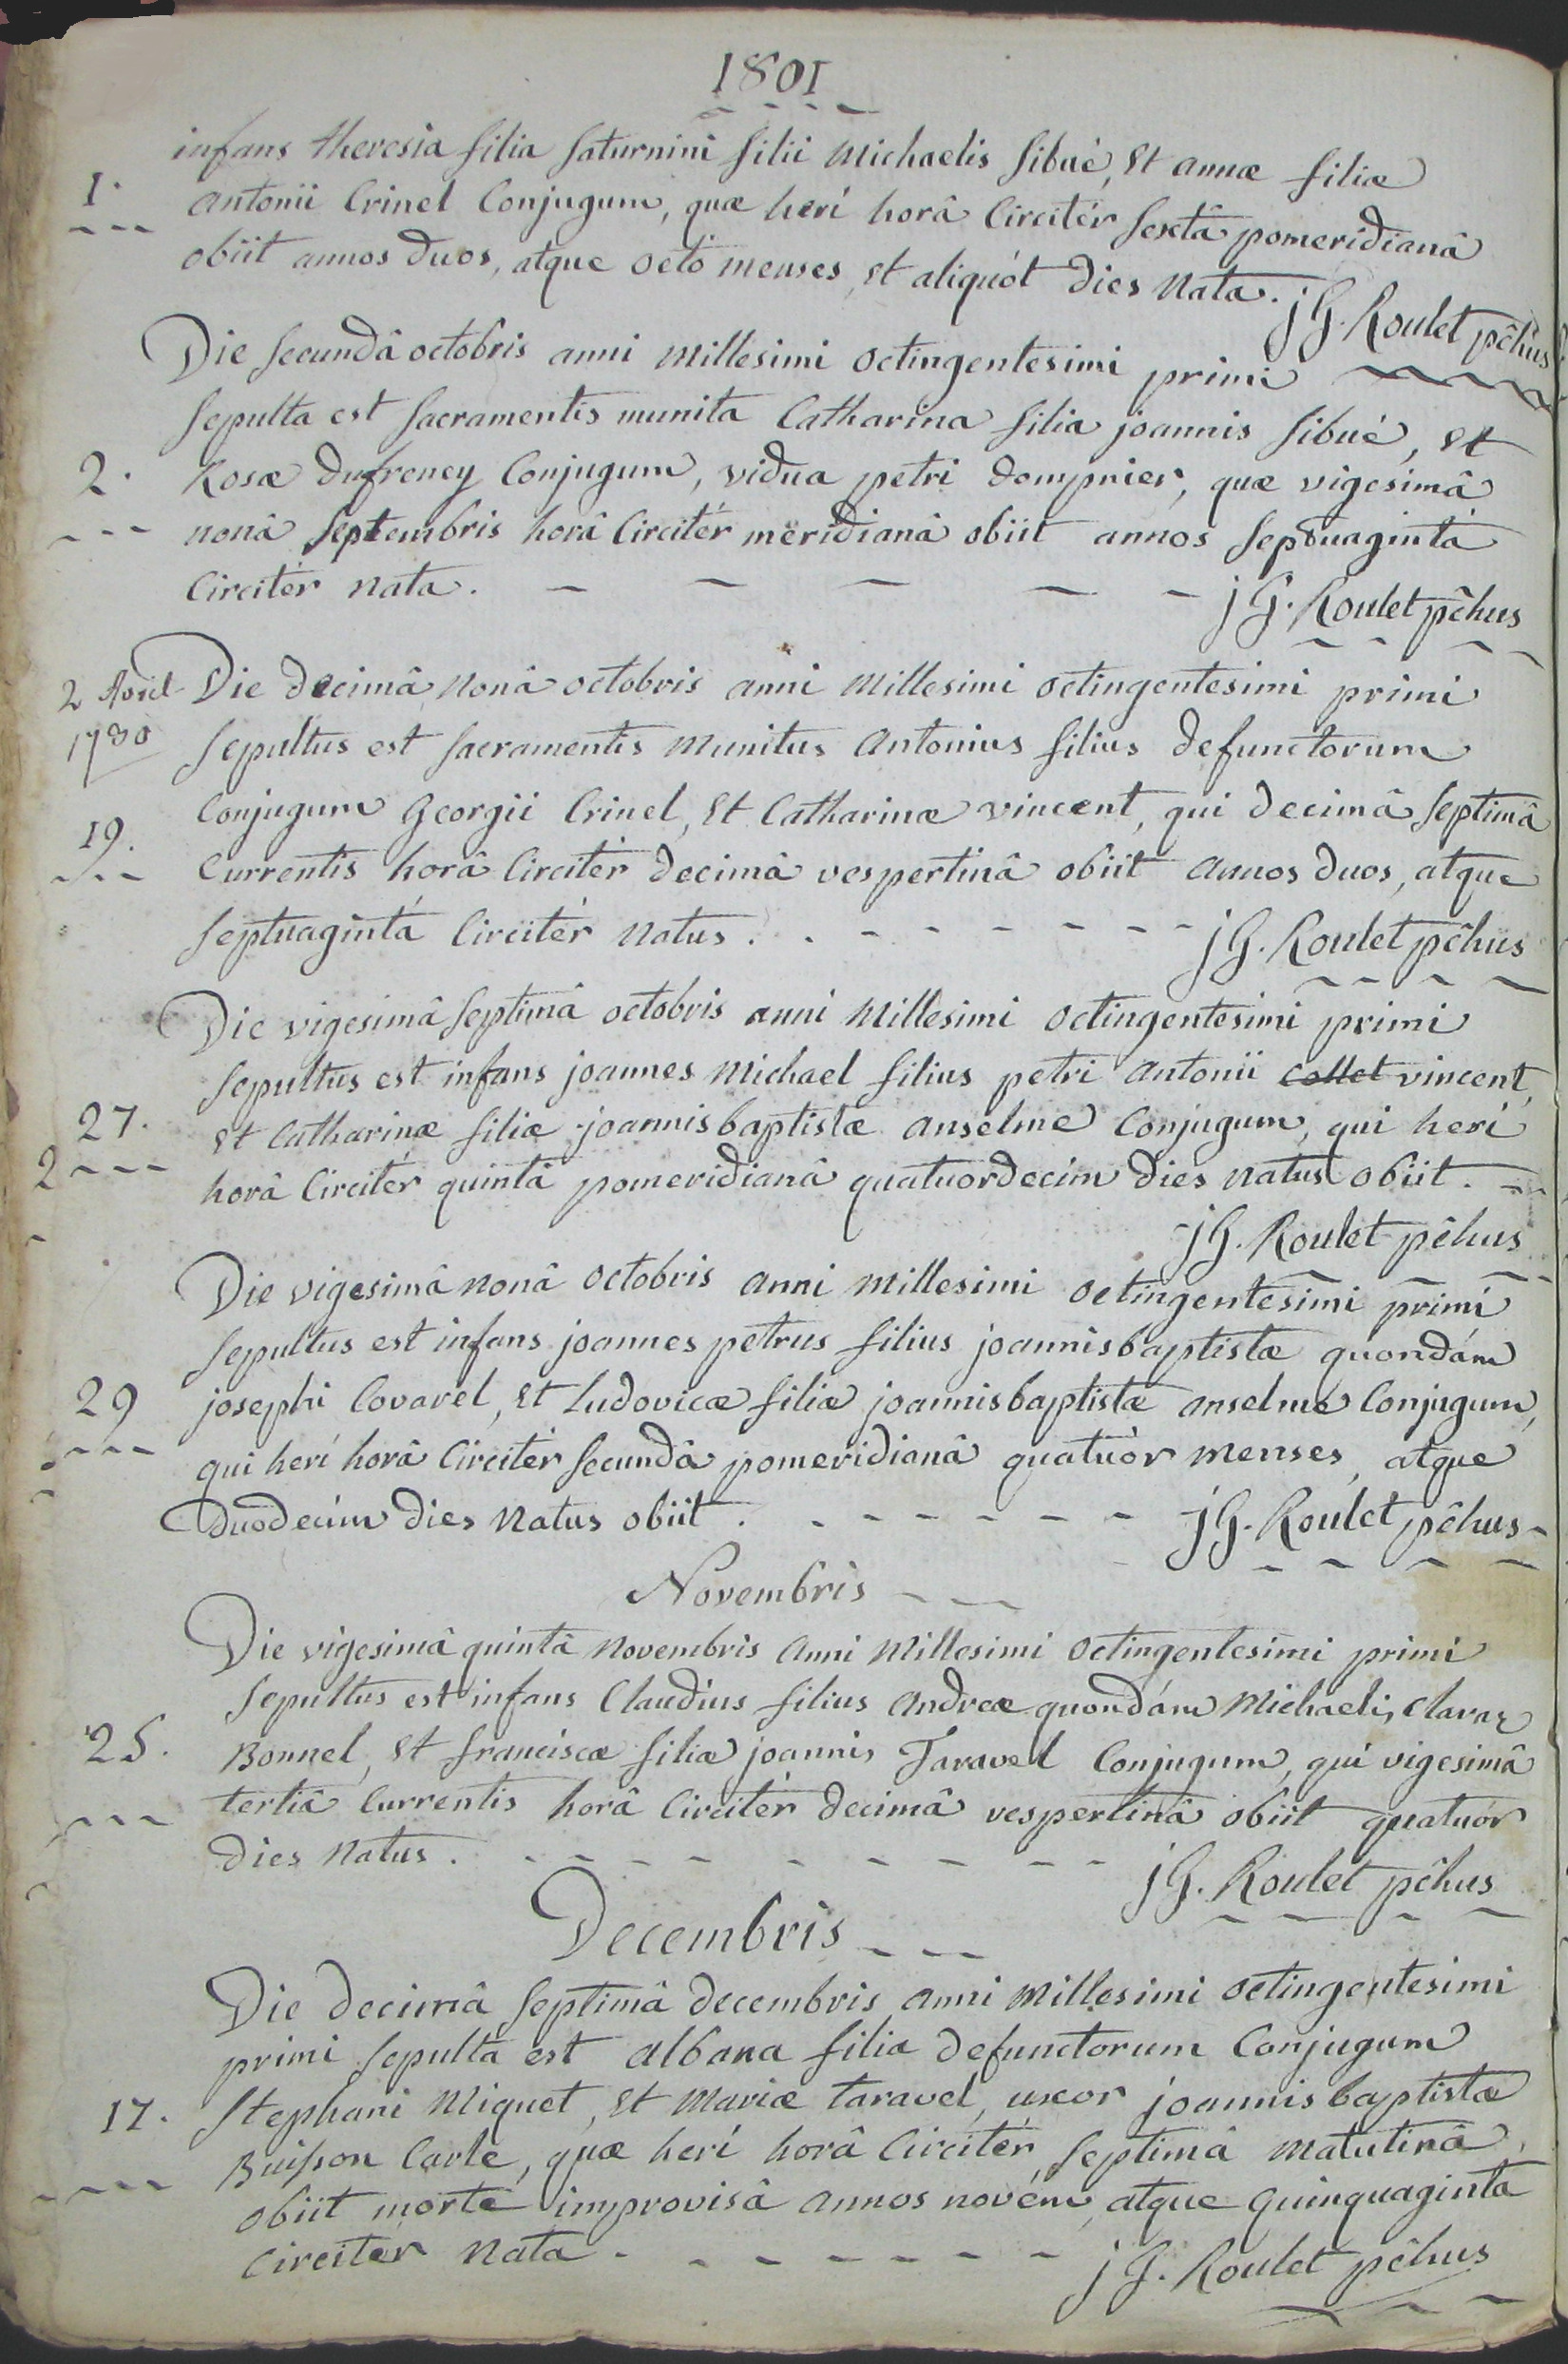 1801
infans theresia filia Saturnini filii Michaelis Sibué, Et annæ filiæ
1.
antonii Crinel Conjugum, quæ herí horâ Circitér Sextâ pomeridianâ
obiit annos duos, atque octo menses, Et aliquót dies Nata. j G. Roulet pêhus
Die Secundâ octobris anni Millesimi octingentesimi primi
Sepulta est Sacramentis munita Catharina filia joannis Sibué, Et
2.
Rosæ Dufreney Conjugum, vidua petri Dompnier, quæ vigesimâ
nonâ Septembris horâ Circitér meridianâ obiit annos Septuagintá
Circitér Nata. j G. Roulet pêhus
2 Avril
1730
Die decimâ Nonâ octobris anni Millesimi octingentesimi primi
Sepultus est Sacramentis Munitus Antonius filius defunctorum
19.
Conjugum Georgii Crinel, Et Catharinæ vincent, qui decimâ Septimâ
Currentis horâ Circitér decimâ vespertinâ obiit annos duos, atque
Septuagintá Circitér Natus. j G. Roulet pêhus
Die vigesimâ Septimâ octobris anni Millesimi octingentesimi primi
Sepultus est infans joannes Michael filius petri Antonii Collet vincent,
27.
2
Et Catharinæ filiæ joannisbaptistæ Anselme Conjugum, qui herí
horâ Circitér quintâ pomeridianâ quatuordecim dies Natus obiit.
j G. Roulet pêhus
Die vigesimâ Nonâ octobris anni Millesimi octingentesimi primi
Sepultus est infans joannes petrus filius joannisbaptistæ quondám
29
josephi Covarel, Et Ludovicæ filiæ joannisbaptistæ anselme Conjugum,
qui herí horâ Circitér Secundâ pomeridianâ quatuór menses, atque
Duodecím dies Natus obiit. j G. Roulet pêhus
Novembris
Die vigesimâ quintâ Novembris Anni Millesimi octingentesimi primi
Sepultus est infans Claudius filius Andreæ quondám Michaelis Claraz
25.
Bonnel, Et franciscæ filiæ joannis Taravel Conjugum, qui vigesimâ
tertiâ Currentis horâ Circitér decimâ vespertinâ obiit quatuór
dies Natus. j G. Roulet pêhus
Decembris
Die decimâ Septimâ decembris anni Millesimi octingentesimi
primi Sepulta est albana filia defunctorum Conjugum
17.
Stephani Miquet, Et Mariæ taravel, uxor joannisbaptistæ
Buisson Carle, quæ herí horâ Circitér Septimâ Matutinâ
obiit morte improvisâ annos novém, atque Quinquaginta
Circitér Nata. j G. Roulet pêhus